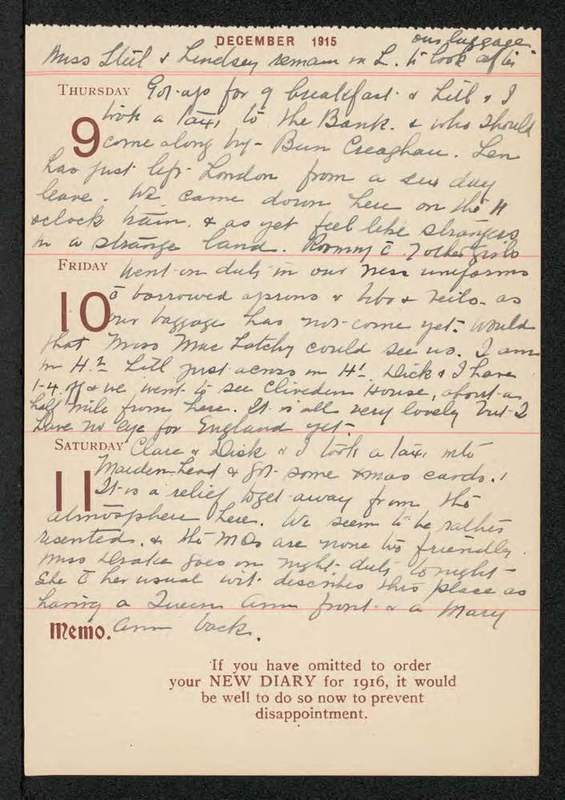 DECEMBER 1915
our luggage
Miss Steel & Lindsey remain in L. to look after
THURSDAY Got up for 9 breakfast & Lill & I
9 took a taxi to the Bank. & who should
come along by - Bun Creaghan. Len
has just left London from a six day
leave. We came down here on the 4
o'clock train. & as yet feel like strangers
in a strange land. Rooming c̄ 7 other girls
FRIDAY Went on duty in our new uniforms
10 c̄ borrowed aprons & bibs & veils. as
our baggage has not come yet. Would
that Miss MacLatchy could see us. I am
in H.2 Lill just across in H1. Dick & I have
1-4 off & we went to see Cliveden House, about a
half mile from here. It is all very lovely but I
have no eye for England yet.
SATURDAY Clare & Dick & I took a taxi into
11 Maidenhead & got some Xmas cards.
It is a relief to get away from the
atmosphere here. We seem to be rather
resented. & the MOs are none too friendly.
Miss Drake goes on night duty tonight
She c̄ her usual wit describes this place as
having a Queen Ann front & a Mary
Memo. Ann back.
If you have omitted to order
your NEW DIARY for 1916, it would
be well to do so now to prevent
disappointment.